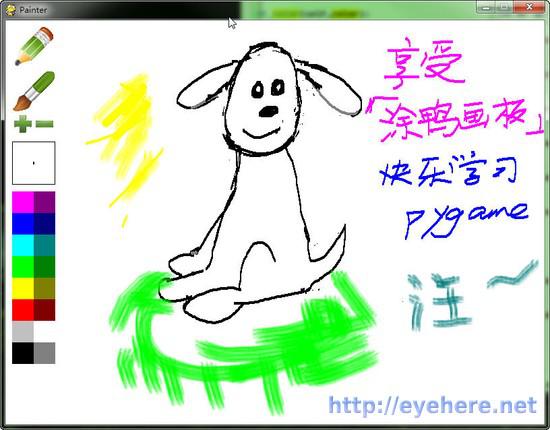 Painter
享受
「涂鸭画板」
快乐学习
pygame
汪~
http://eyehere.net